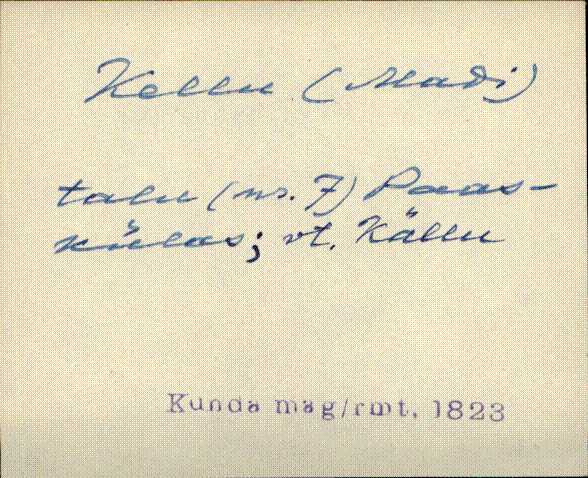 Kellu (Madi)
talu (nr. 7) Paas-
külas; vt. Källu
Kunda mag/rmt. 1823